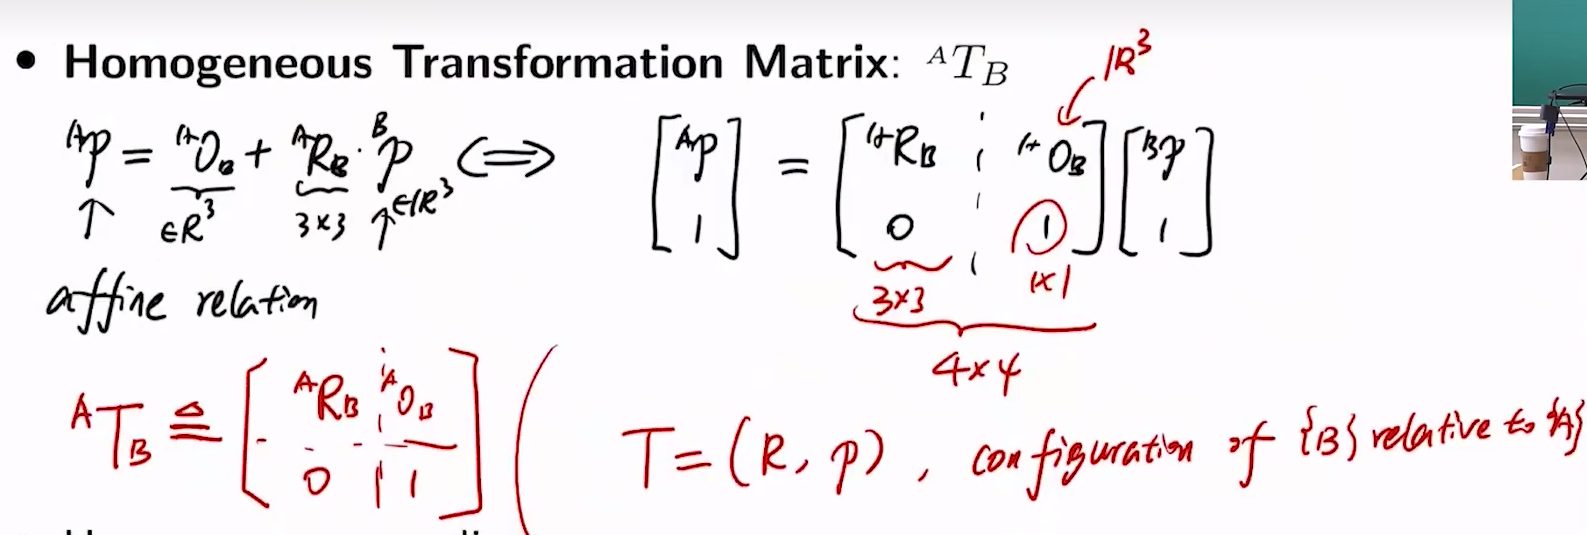 • Homogeneous Transformation Matrix: ᴬT_B
ᴬp = ᴬO_B + ᴬR_B · ᴮp ⟺ [ᴬp; 1] = [ᴬR_B ¦ ᴬO_B; 0 ¦ 1] [ᴮp; 1]
ℝ³
↑ ∈R³ 3×3 ↑∈ℝ³
3×3 1×1
affine relation
4×4
ᴬT_B ≜ [ᴬR_B ¦ ᴬO_B; 0 ¦ 1] ( T = (R, p), configuration of {B} relative to {A}